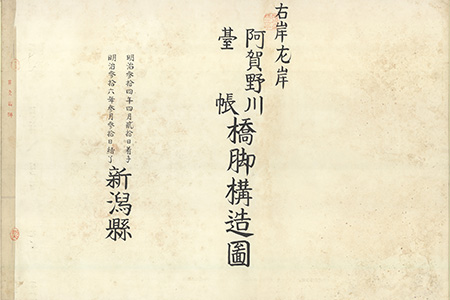 右岸左岸
阿賀野川
臺帳
橋脚構造圖
明治參拾四年四月貳拾日着手
明治參拾六年參月參拾日了
新潟縣